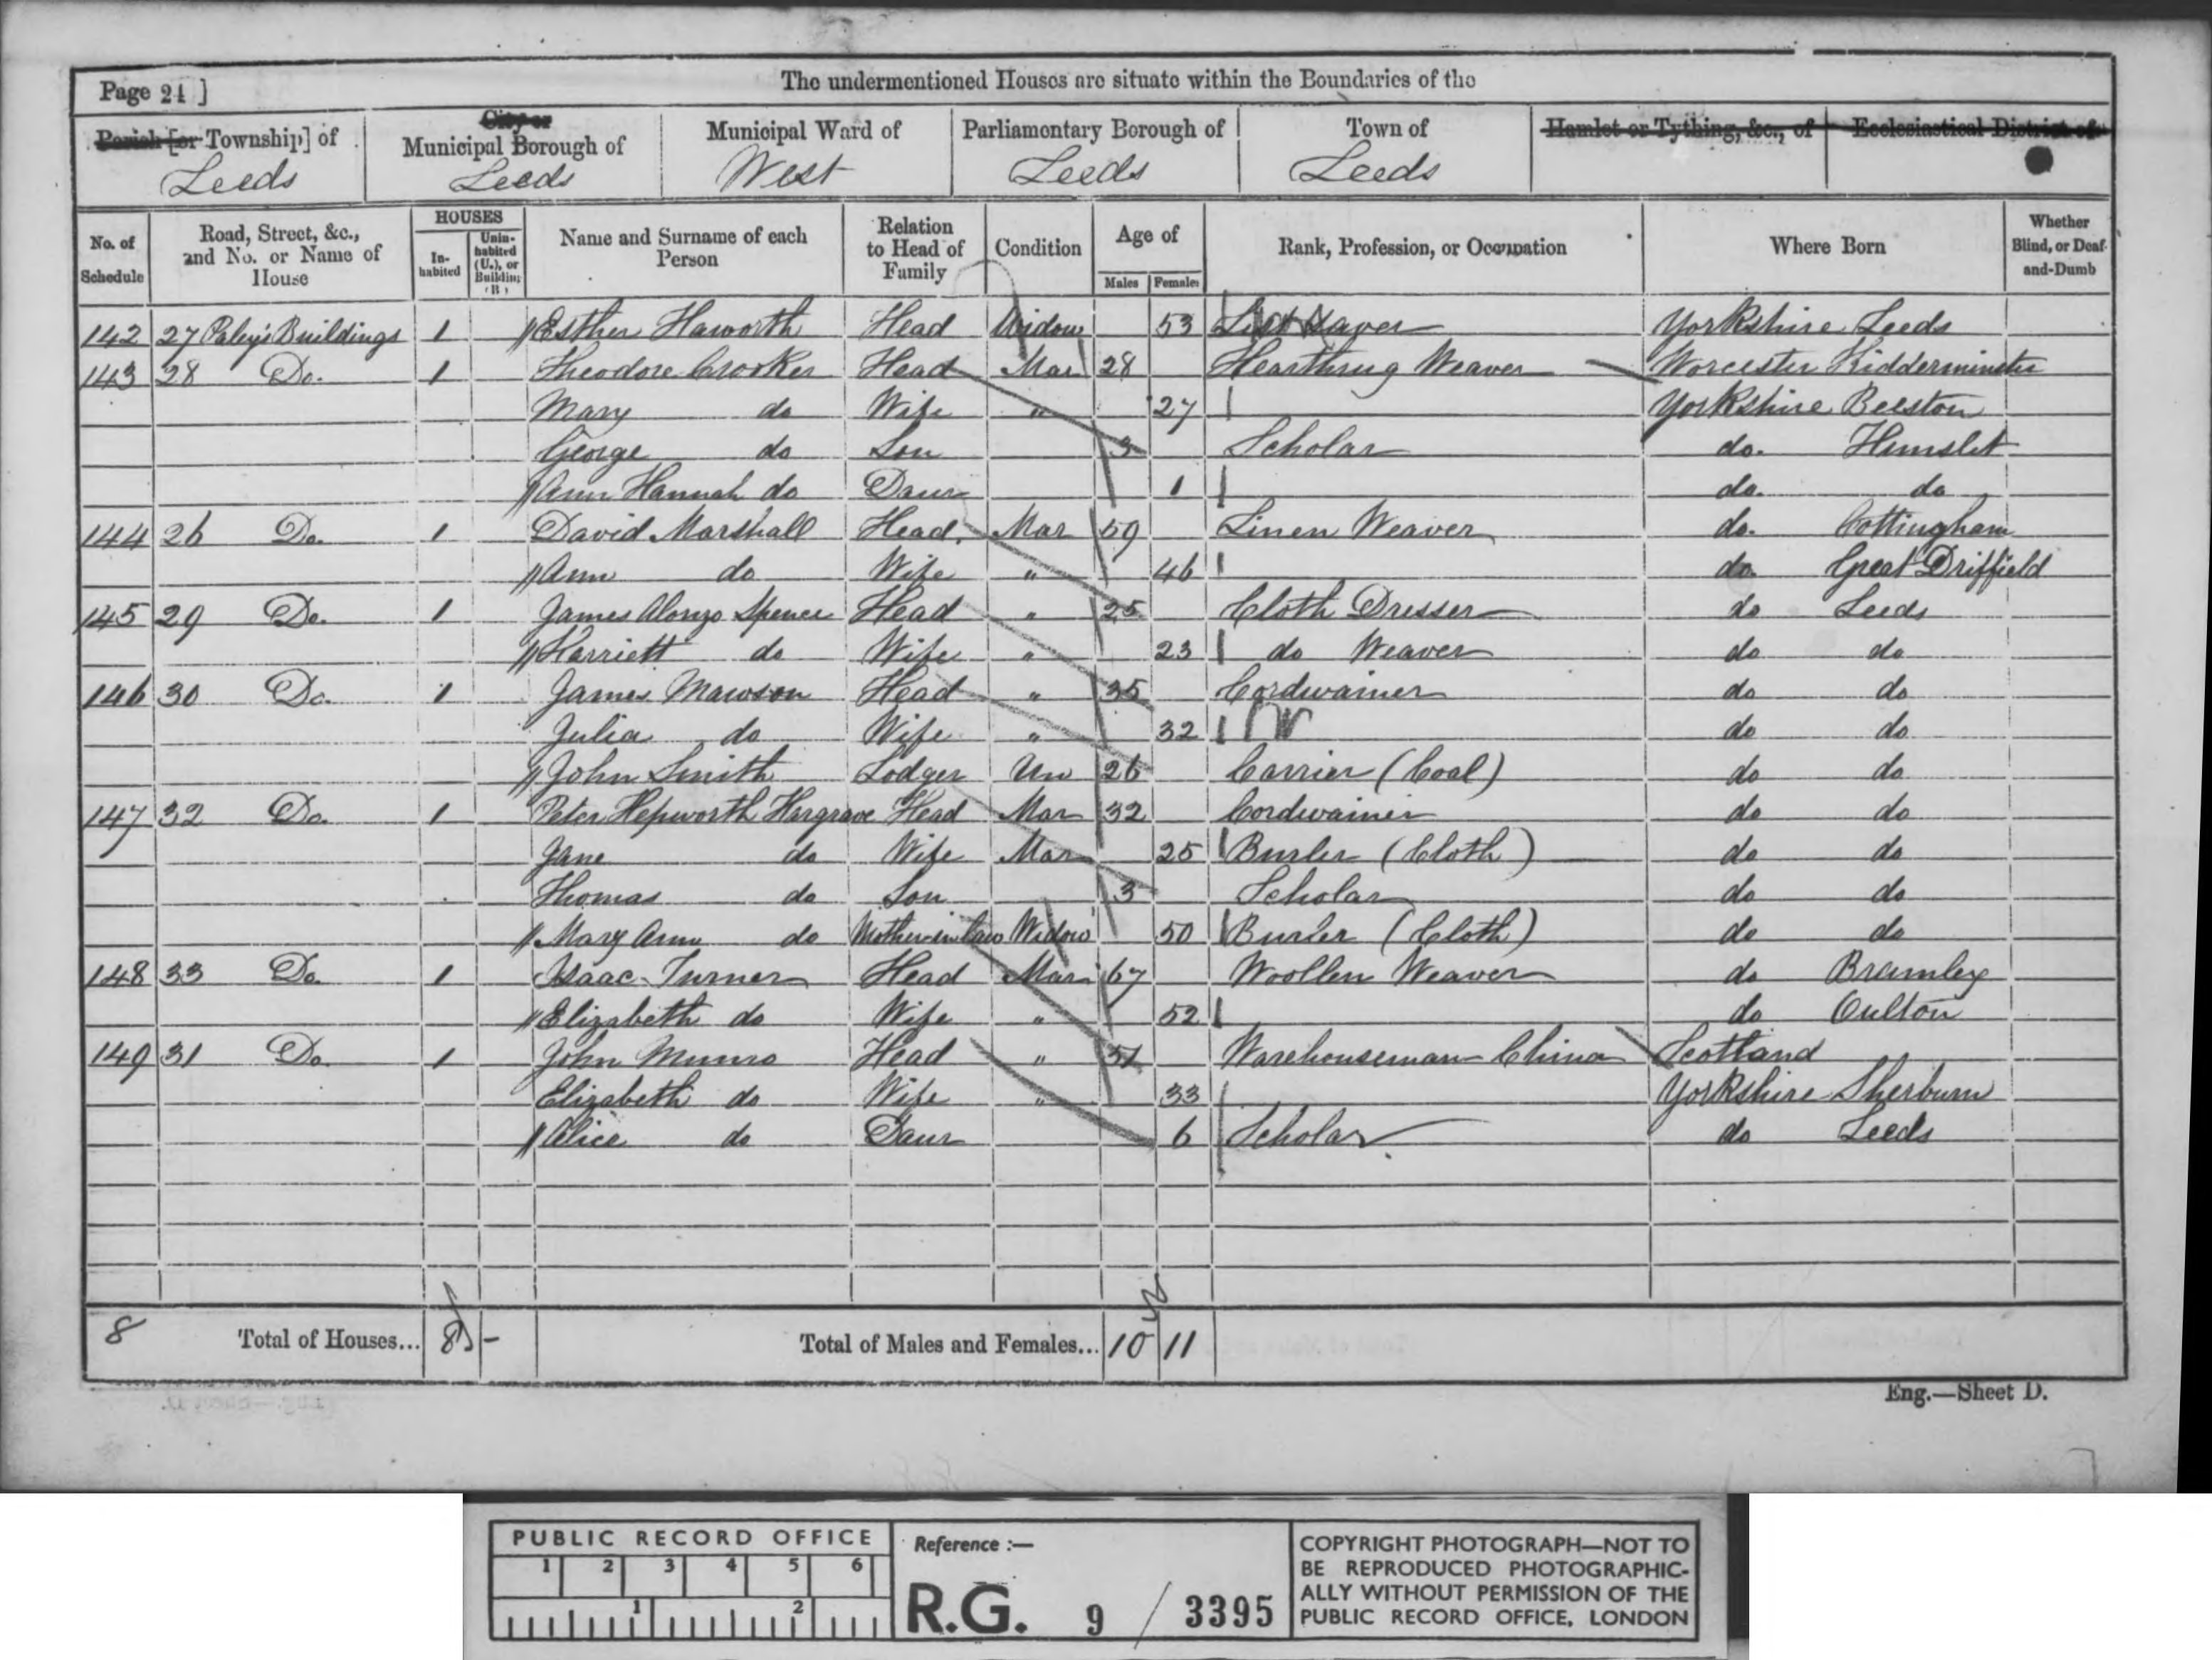 The undermentioned Houses are situate within the Boundaries of the
Page 21 ]
Parish [or Township] of
Leeds
City or
Municipal Borough of
Leeds
Municipal Ward of
West
Parliamentary Borough of
Leeds
Town of
Leeds
Hamlet or Tything, &c., of
Ecclesiastical District of
No. of Schedule
Road, Street, &c., and No. or Name of House
HOUSES
In-habited
Unin-habited (U.), or Building (B)
Name and Surname of each Person
Relation to Head of Family
Condition
Age of
Males
Females
Rank, Profession, or Occupation
Where Born
Whether Blind, or Deaf-and-Dumb
142 27 Paley's Buildings 1 Esther Haworth Head Widow 53 Yorkshire Leeds
143 28 Do. 1 Theodore Crooker Head Mar 28 Hearthrug Weaver Worcester Kidderminster
Mary do Wife " 27 Yorkshire Beeston
George do Son 3 Scholar do. Hunslet
Ann Hannah do Daur 1 do. do
144 26 Do. 1 David Marshall Head Mar 59 Linen Weaver do. Cottingham
Ann do Wife " 46 do. Great Driffield
145 29 Do. 1 James Alonzo Spence Head " 25 Cloth Dresser do Leeds
Harriett do Wife " 23 do Weaver do do
146 30 Do. 1 James Mawson Head " 35 Cordwainer do do
Julia do Wife " 32 do do
John Smith Lodger Un 26 Carrier (Coal) do do
147 32 Do. 1 Peter Hepworth Hargrave Head Mar 32 Cordwainer do do
Jane do Wife Mar 25 Burler (Cloth) do do
Thomas do Son 3 Scholar do do
Mary Ann do Mother-in-law Widow 50 Burler (Cloth) do do
148 33 Do. 1 Isaac Turner Head Mar 67 Woollen Weaver do Bramley
Elizabeth do Wife " 52 do Oulton
149 31 Do. 1 John Munro Head " 51 Warehouseman China Scotland
Elizabeth do Wife " 33 Yorkshire Sherburn
Alice do Daur 6 Scholar do Leeds
8 Total of Houses... 8 - Total of Males and Females... 10 11
Eng.—Sheet D.
PUBLIC RECORD OFFICE
1 2 3 4 5 6
1 2
Reference :—
R.G. 9 / 3395
COPYRIGHT PHOTOGRAPH—NOT TO
BE REPRODUCED PHOTOGRAPHIC-
ALLY WITHOUT PERMISSION OF THE
PUBLIC RECORD OFFICE, LONDON